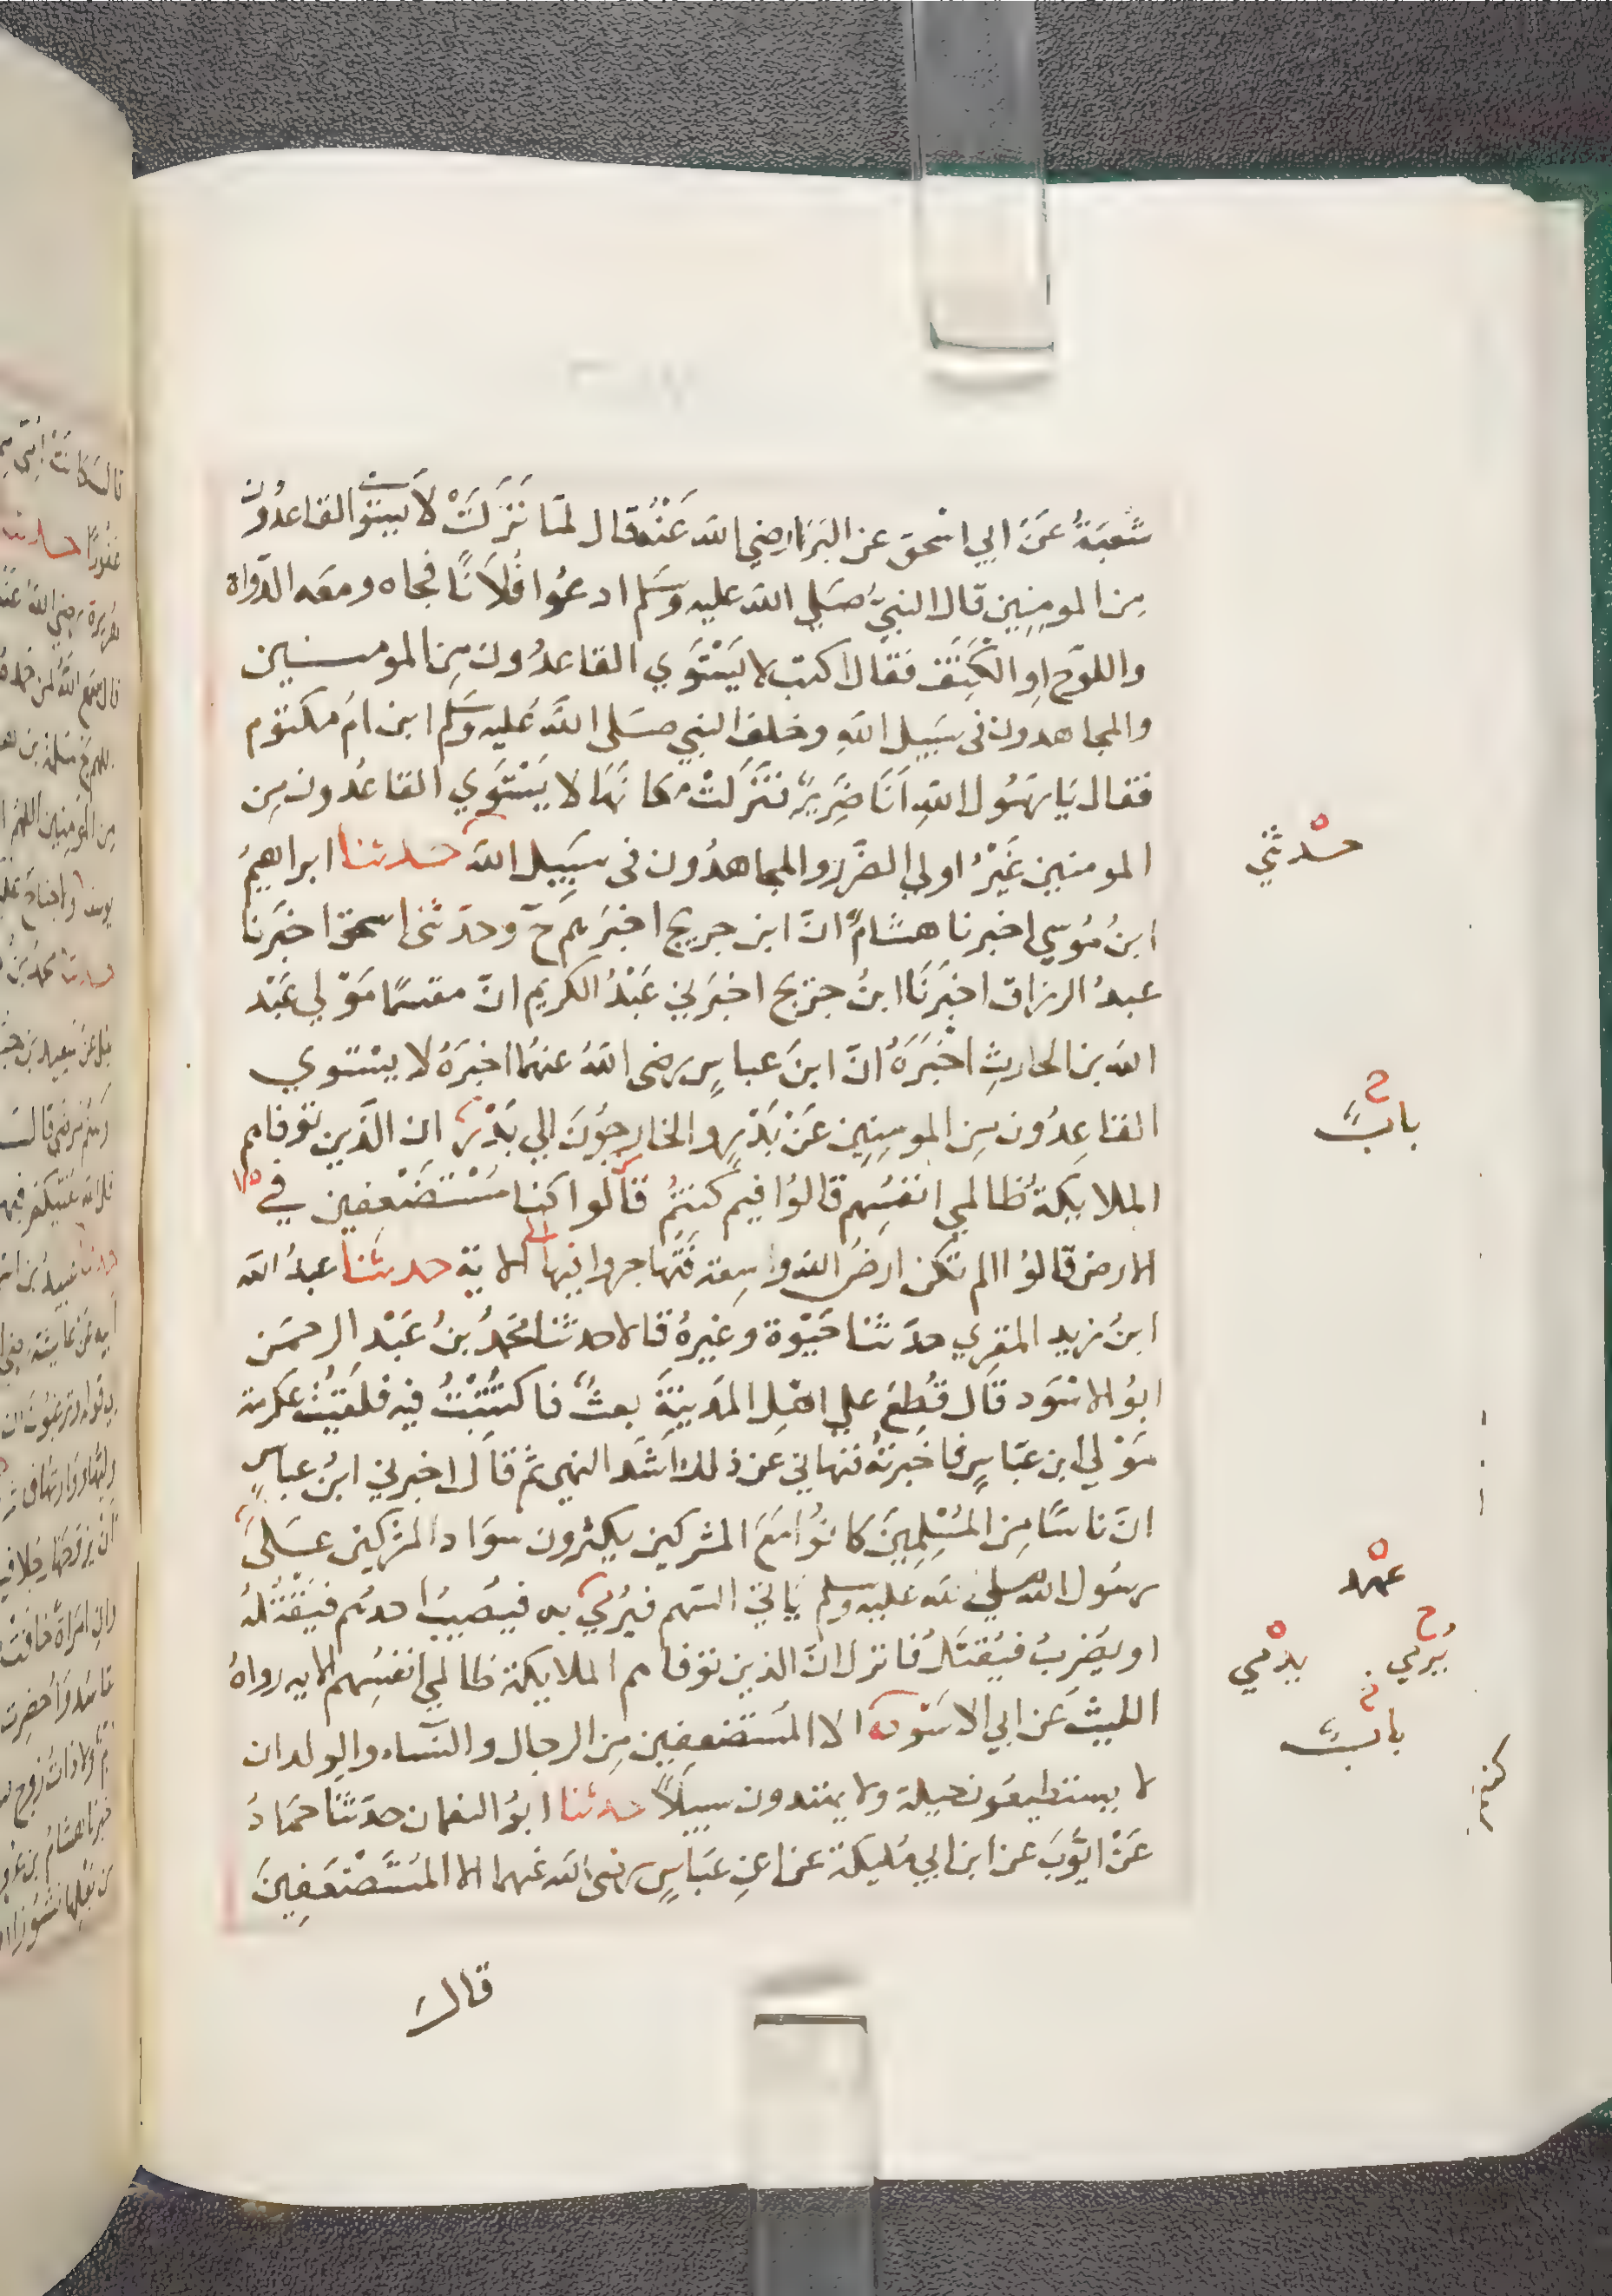 شعبَةُ عَنْ ابي اسْحق عن البَرَا رضي الله عَنْهُ قال لمّا نَزَلَتْ لا يَستوي القاعدُون
مِن المومنِين قال النبيُّ صَلي الله عليه وسَلم ادعُوا فُلاَنًا فجاه ومعَه الدَّواة
واللوَح اوِ الكَتِفَ فقال اكتب لا يَسْتَوي القاعدُون مِن المومنين
والمجاهدون في سَبيل اللهِ وخلف النبي صَلى اللهُ عَليه وَسَلم ابن امّ مكتوم
فقال يَا رسُول اللهِ اَنَا ضَرِيرٌ فنَزَلَتْ مكانَهَا لا يَسْتَوي القاعدُون مِن
المومنين غَيْرُ اولي الضَّرَر والمجاهدُون في سبَيل الله حَدثنا ابراهيمُ
ابنُ مُوسي اخبرنا هشامٌ انّ ابن جريج اخبَرهم ح وحدّثني اسحق اخبَرنا
عبدُ الرزاق اخبَرنَا ابنُ جريج اخبَرني عَبْدُ الكريم انّ مقسمًا مَوْلي عَبْد
الله بن الحارثِ اخْبَرَهُ انّ ابنَ عباسٍ رضى اللهُ عنهُما اخبَرَهُ لا يسْتوي
القاعِدُون مِن المومِنِين عَنْ بَدْرٍ والخارِجُونَ الي بَدْرٍ ان الّذين توفاهم
الملايكةُ ظالمي انفسُهم قالوُا فيم كُنتُمْ قالوا كنا مُسْتَضْعفين في
الارض قالوُا الم تكن ارضُ الله واسِعة فَتُهاجروا فيها الاية حدثنَا عبدُ الله
ابنُ يزيد المقري حدّثنا حَيْوة وغيرهُ قالا حدثنا محمدُ بنُ عَبْد الرحمَن
ابوُ الاسْوَد قال قُطِعَ علي اهْلِ المَدينَةِ بعثٌ فاكتُتِبْتُ فيه فلقيتُ عكرمة
مَوْلي ابن عبّاسٍ فاخبرتهُ فنهاني عن ذلك اشدّ النهي ثم قال اخبرني ابنُ عباسٍ
انّ ناسًا مِن المُسْلِمِينَ كانوُا مَعَ المشركين يكثرون سوَاد المشركين عَلَى
رسُول الله صلي الله عليه وسلم يَاتي السّهم فيُرْمَي به فيُصيبُ احدهُم فيَقْتُلهُ
او يُضربُ فيُقتَلُ فانزل انّ الذين توفاهم الملايكة ظالمي انفسِهم الايه رواهُ
الليثُ عَن ابي الاسْوَد الا المُستضعفِين مِن الرجال والنّسَاء والولدان
لا يستطيعُون حيلة ولا يهتدون سبيلاً حدثنا ابوُ النعمان حدّثنا حمّادُ
عَنْ ايُّوبَ عن ابن ابي مُليكة عن ابنِ عَبّاسٍ رضى الله عنهما الا المُسْتَضْعَفِينَ
قال
حدثني
باب
عهد
يُرمي
يدمي
باب